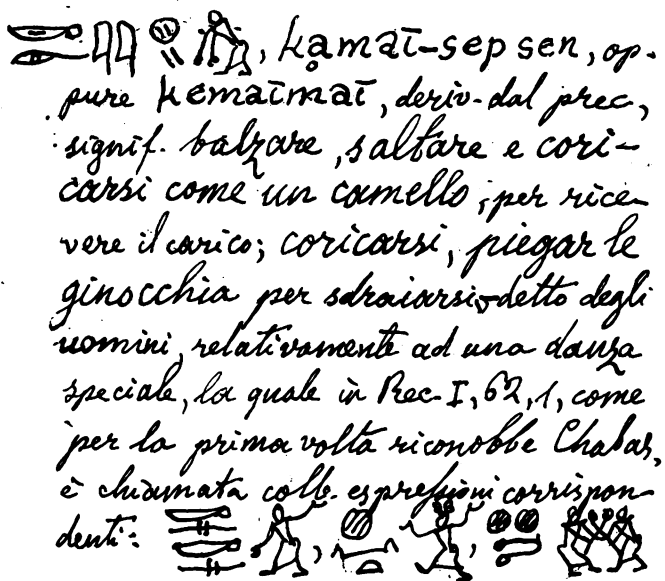 , ḳamaī-sep sen, op-
pure kemaīmaī, deriv. dal prec.,
signif. balzare, saltare e cori-
carsi come un camello, per rice-
vere il carico; coricarsi, piegar le
ginocchia per sdraiarsi, detto degli
uomini, relativamente ad una danza
speciale, la quale in Rec. I, 62, 1, come
per la prima volta riconobbe Chabas,
è chiamata coll. espressioni corrispon-
denti: